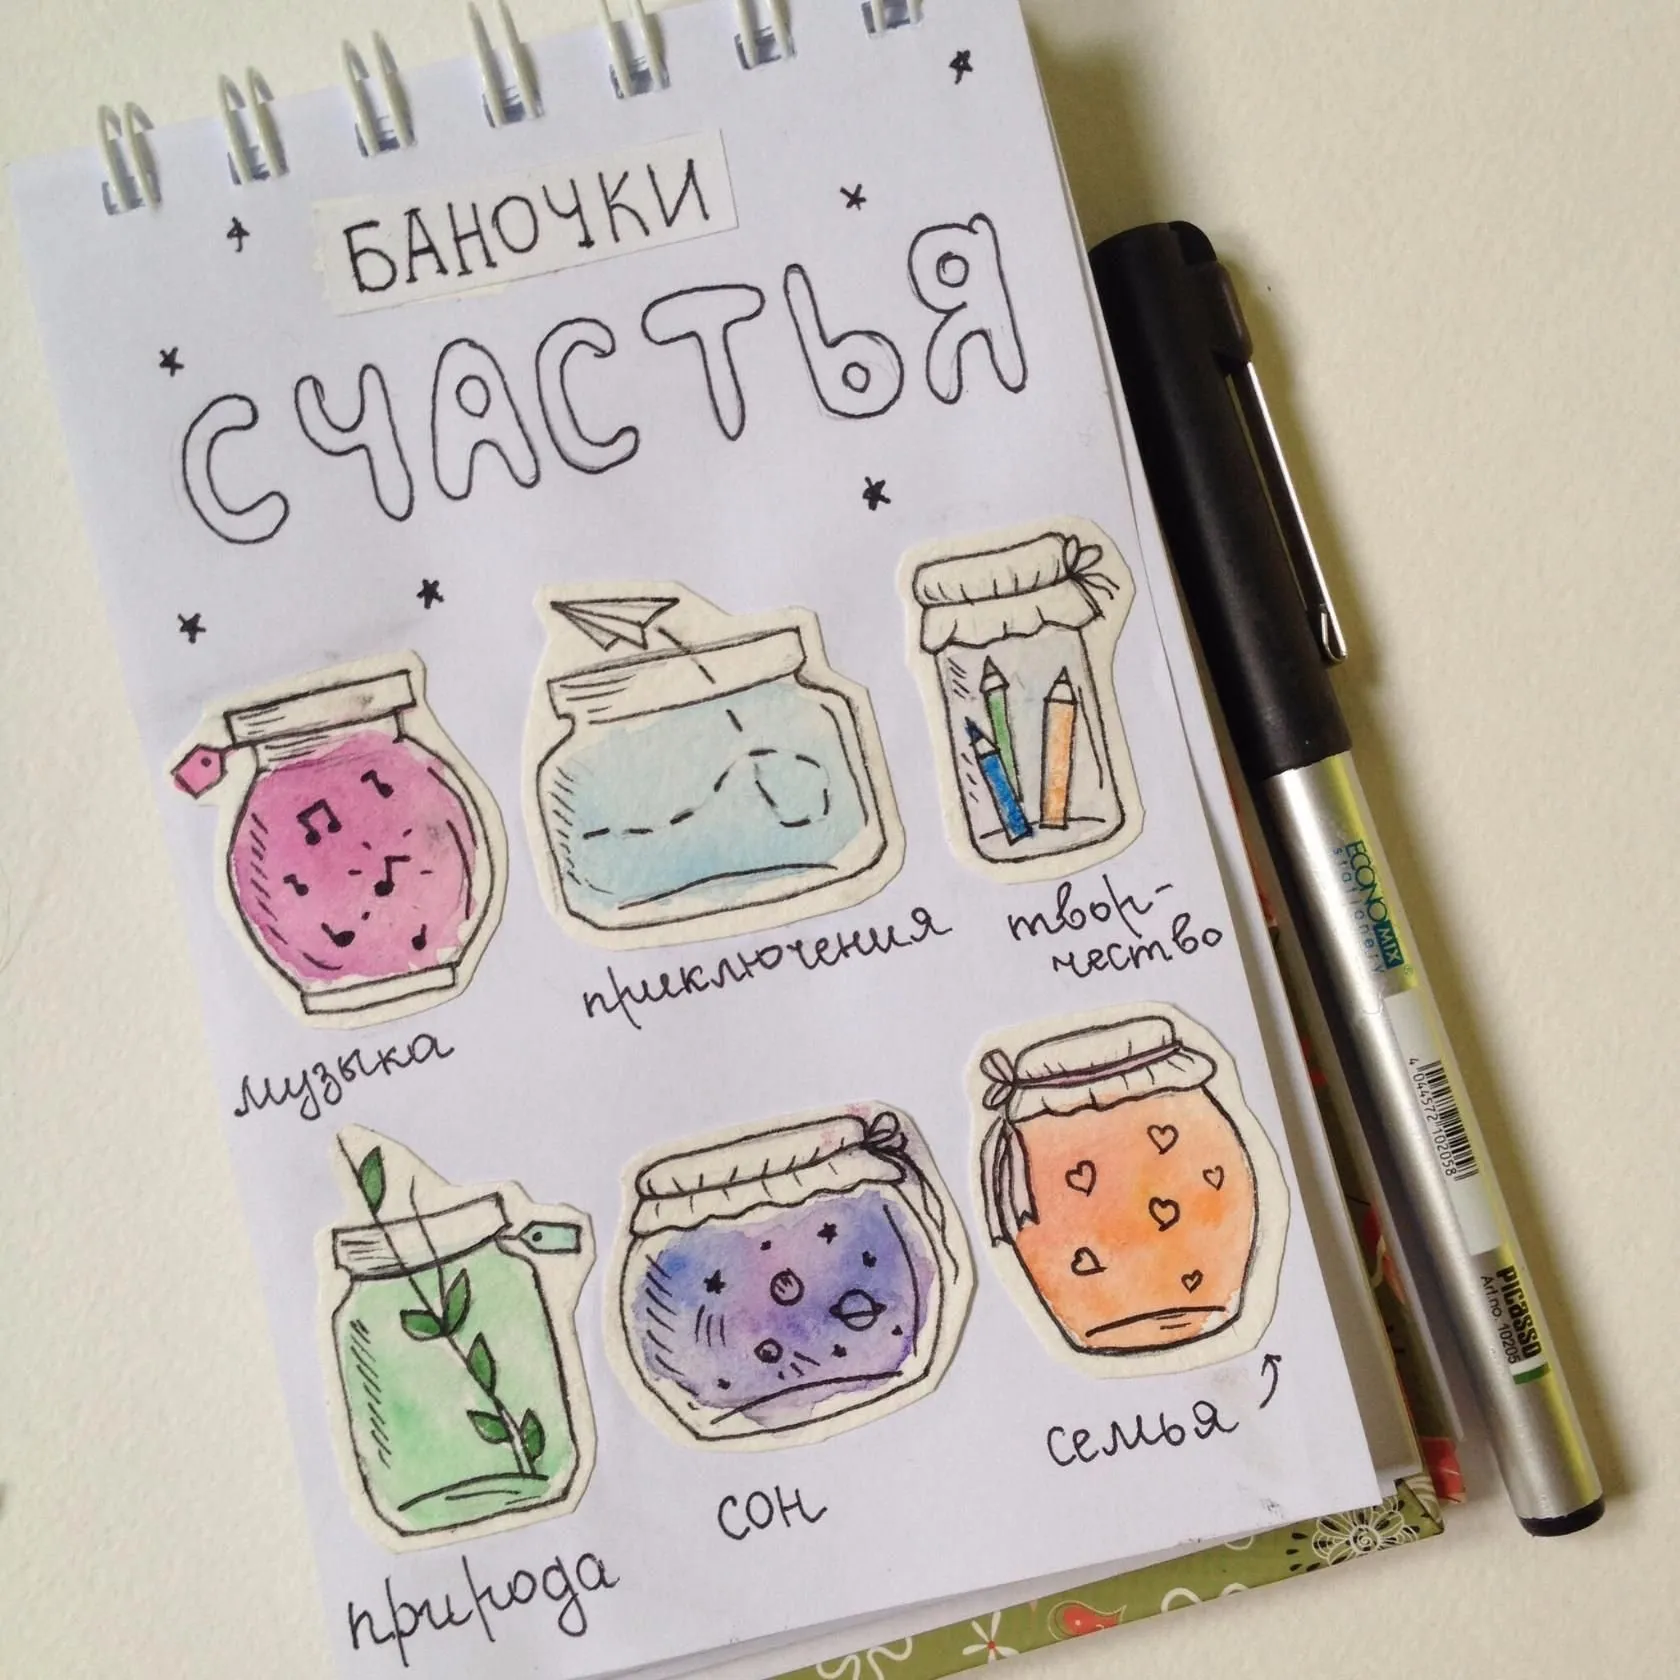 БАНОЧКИ
СЧАСТЬЯ
музыка
приключения
твор-
чество
природа
сон
семья
ECONOMIX
stationery
4 044572 102058
PICASSO
Art.no. 10205